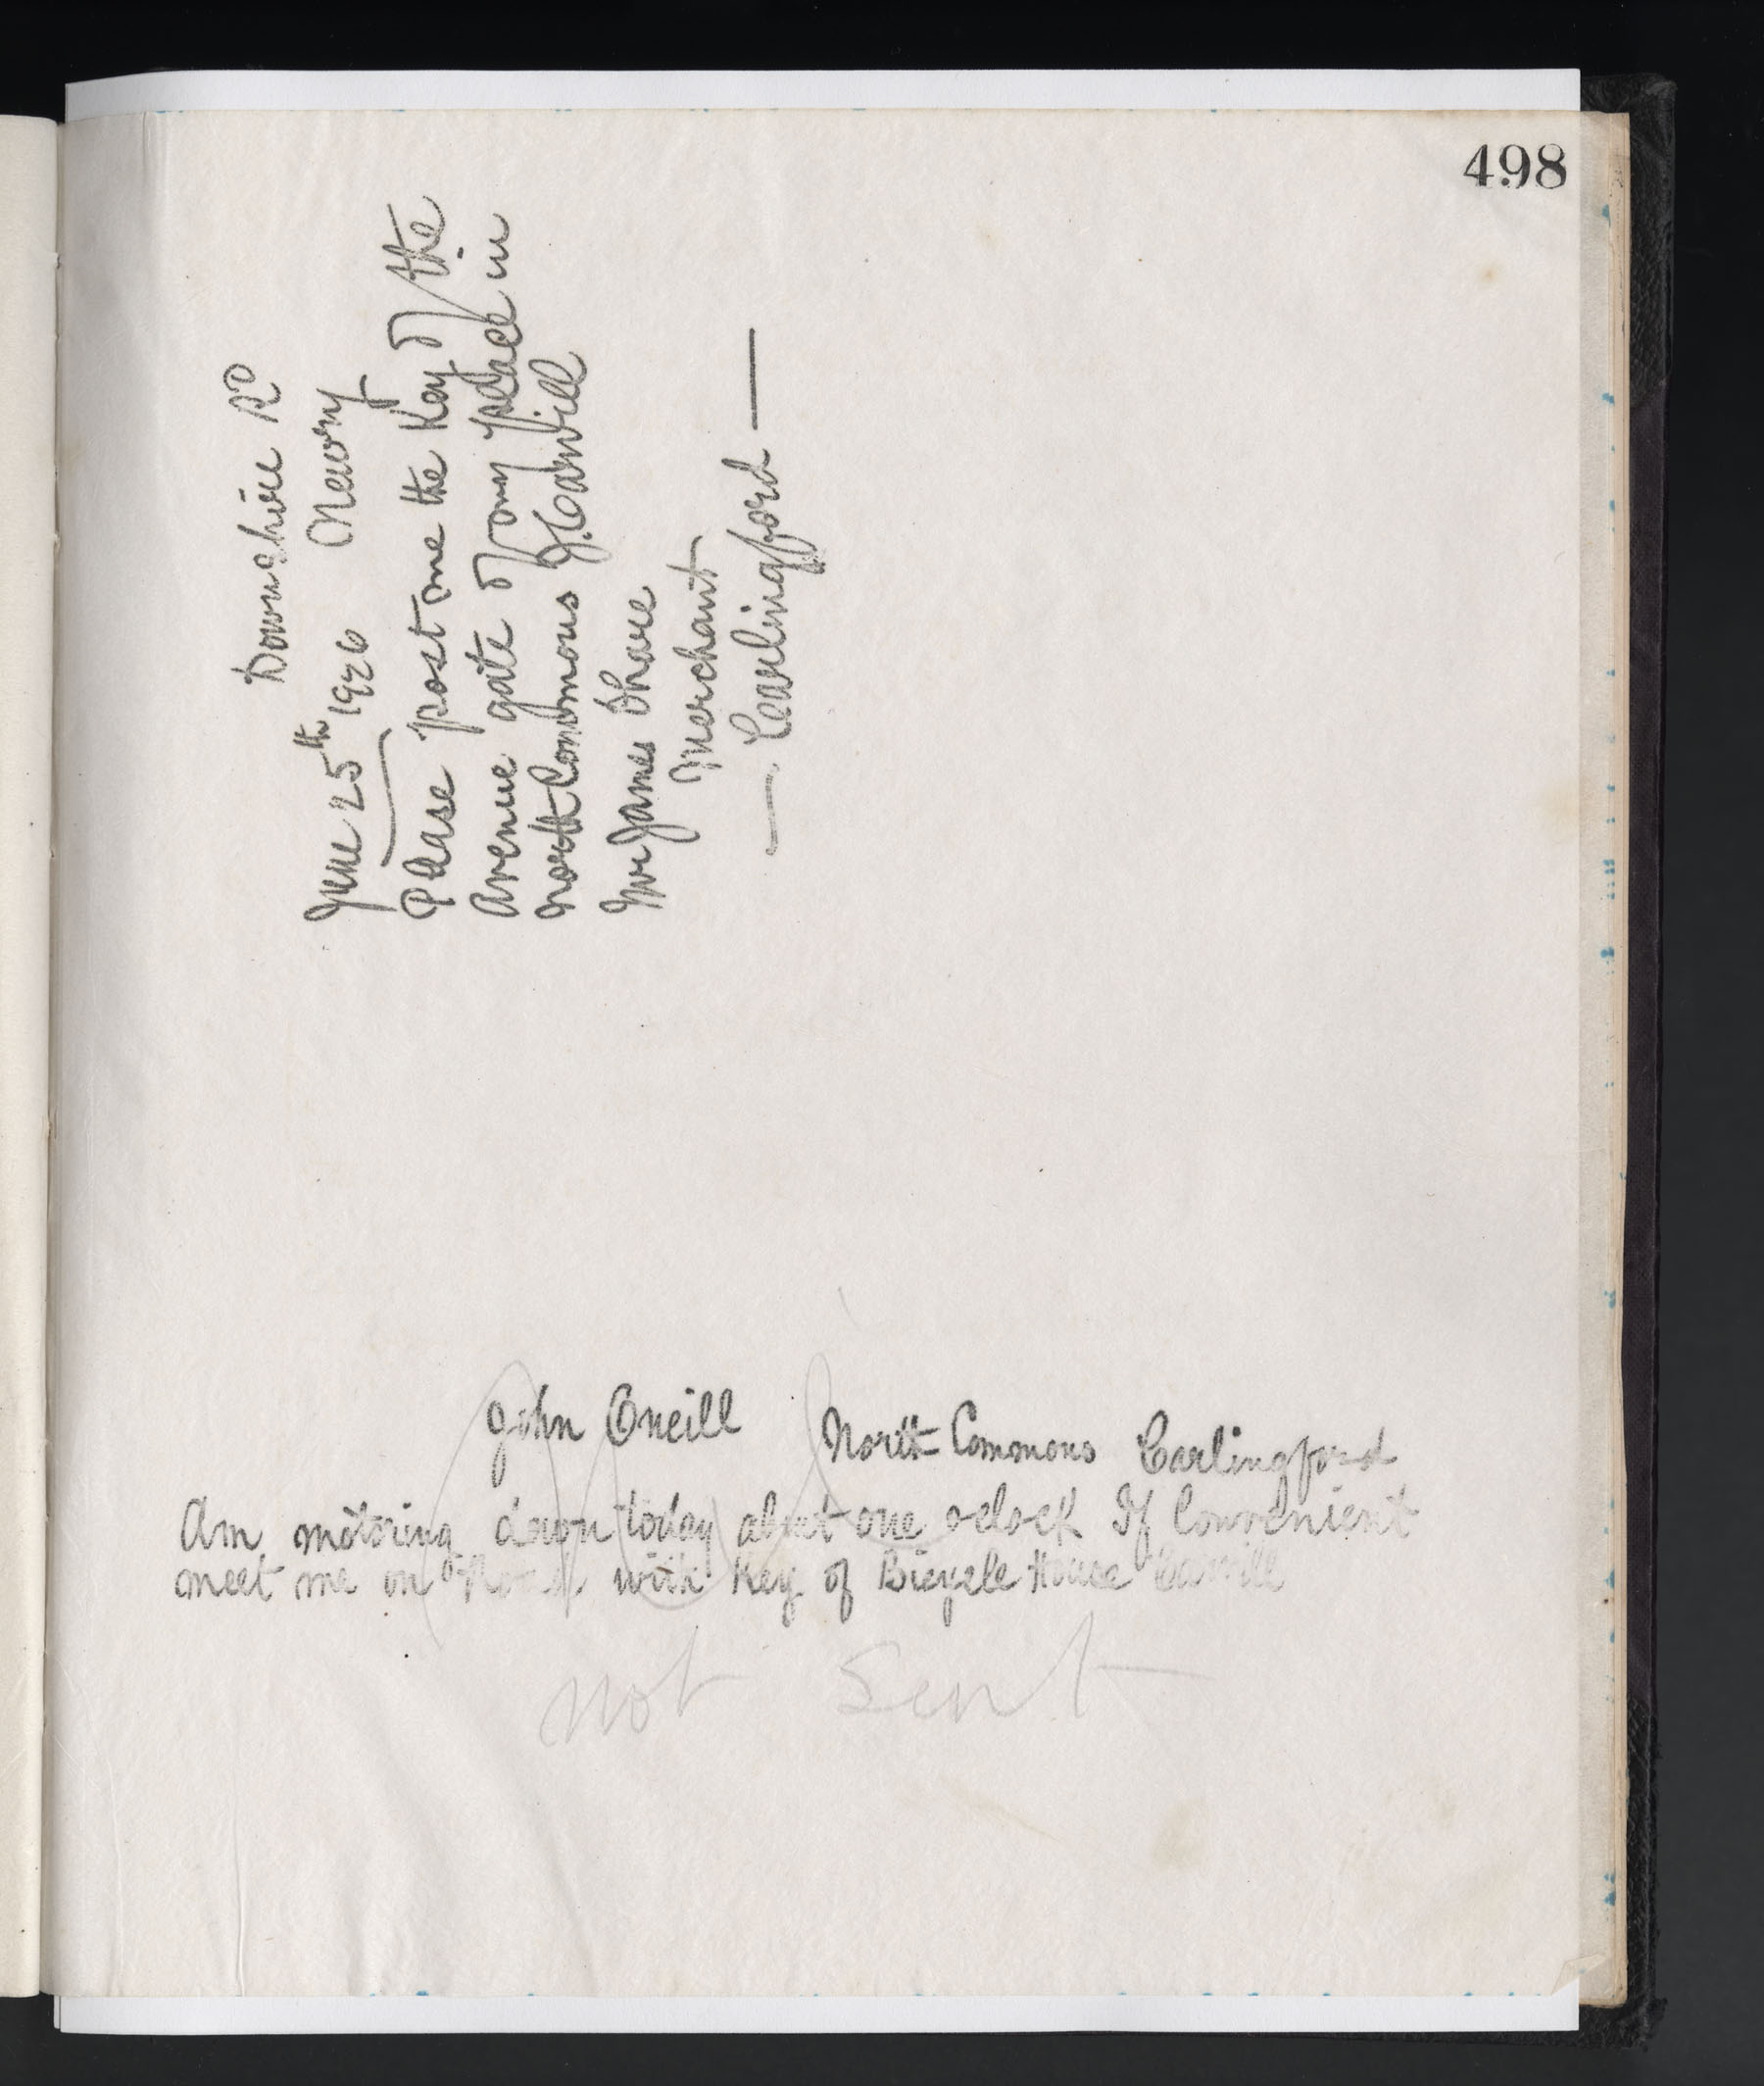 498
Downshire Rd
June 25th 1926 Newry
Please post me the Key of the
Avenue gate of my place in
North Commons J. Carvill
Mr James
Merchant
— Carlingford —
John Oneill North Commons Carlingford
Am motoring down today about one oclock If Convenient
meet me on with Key of Bicycle House Carvill
not Sent